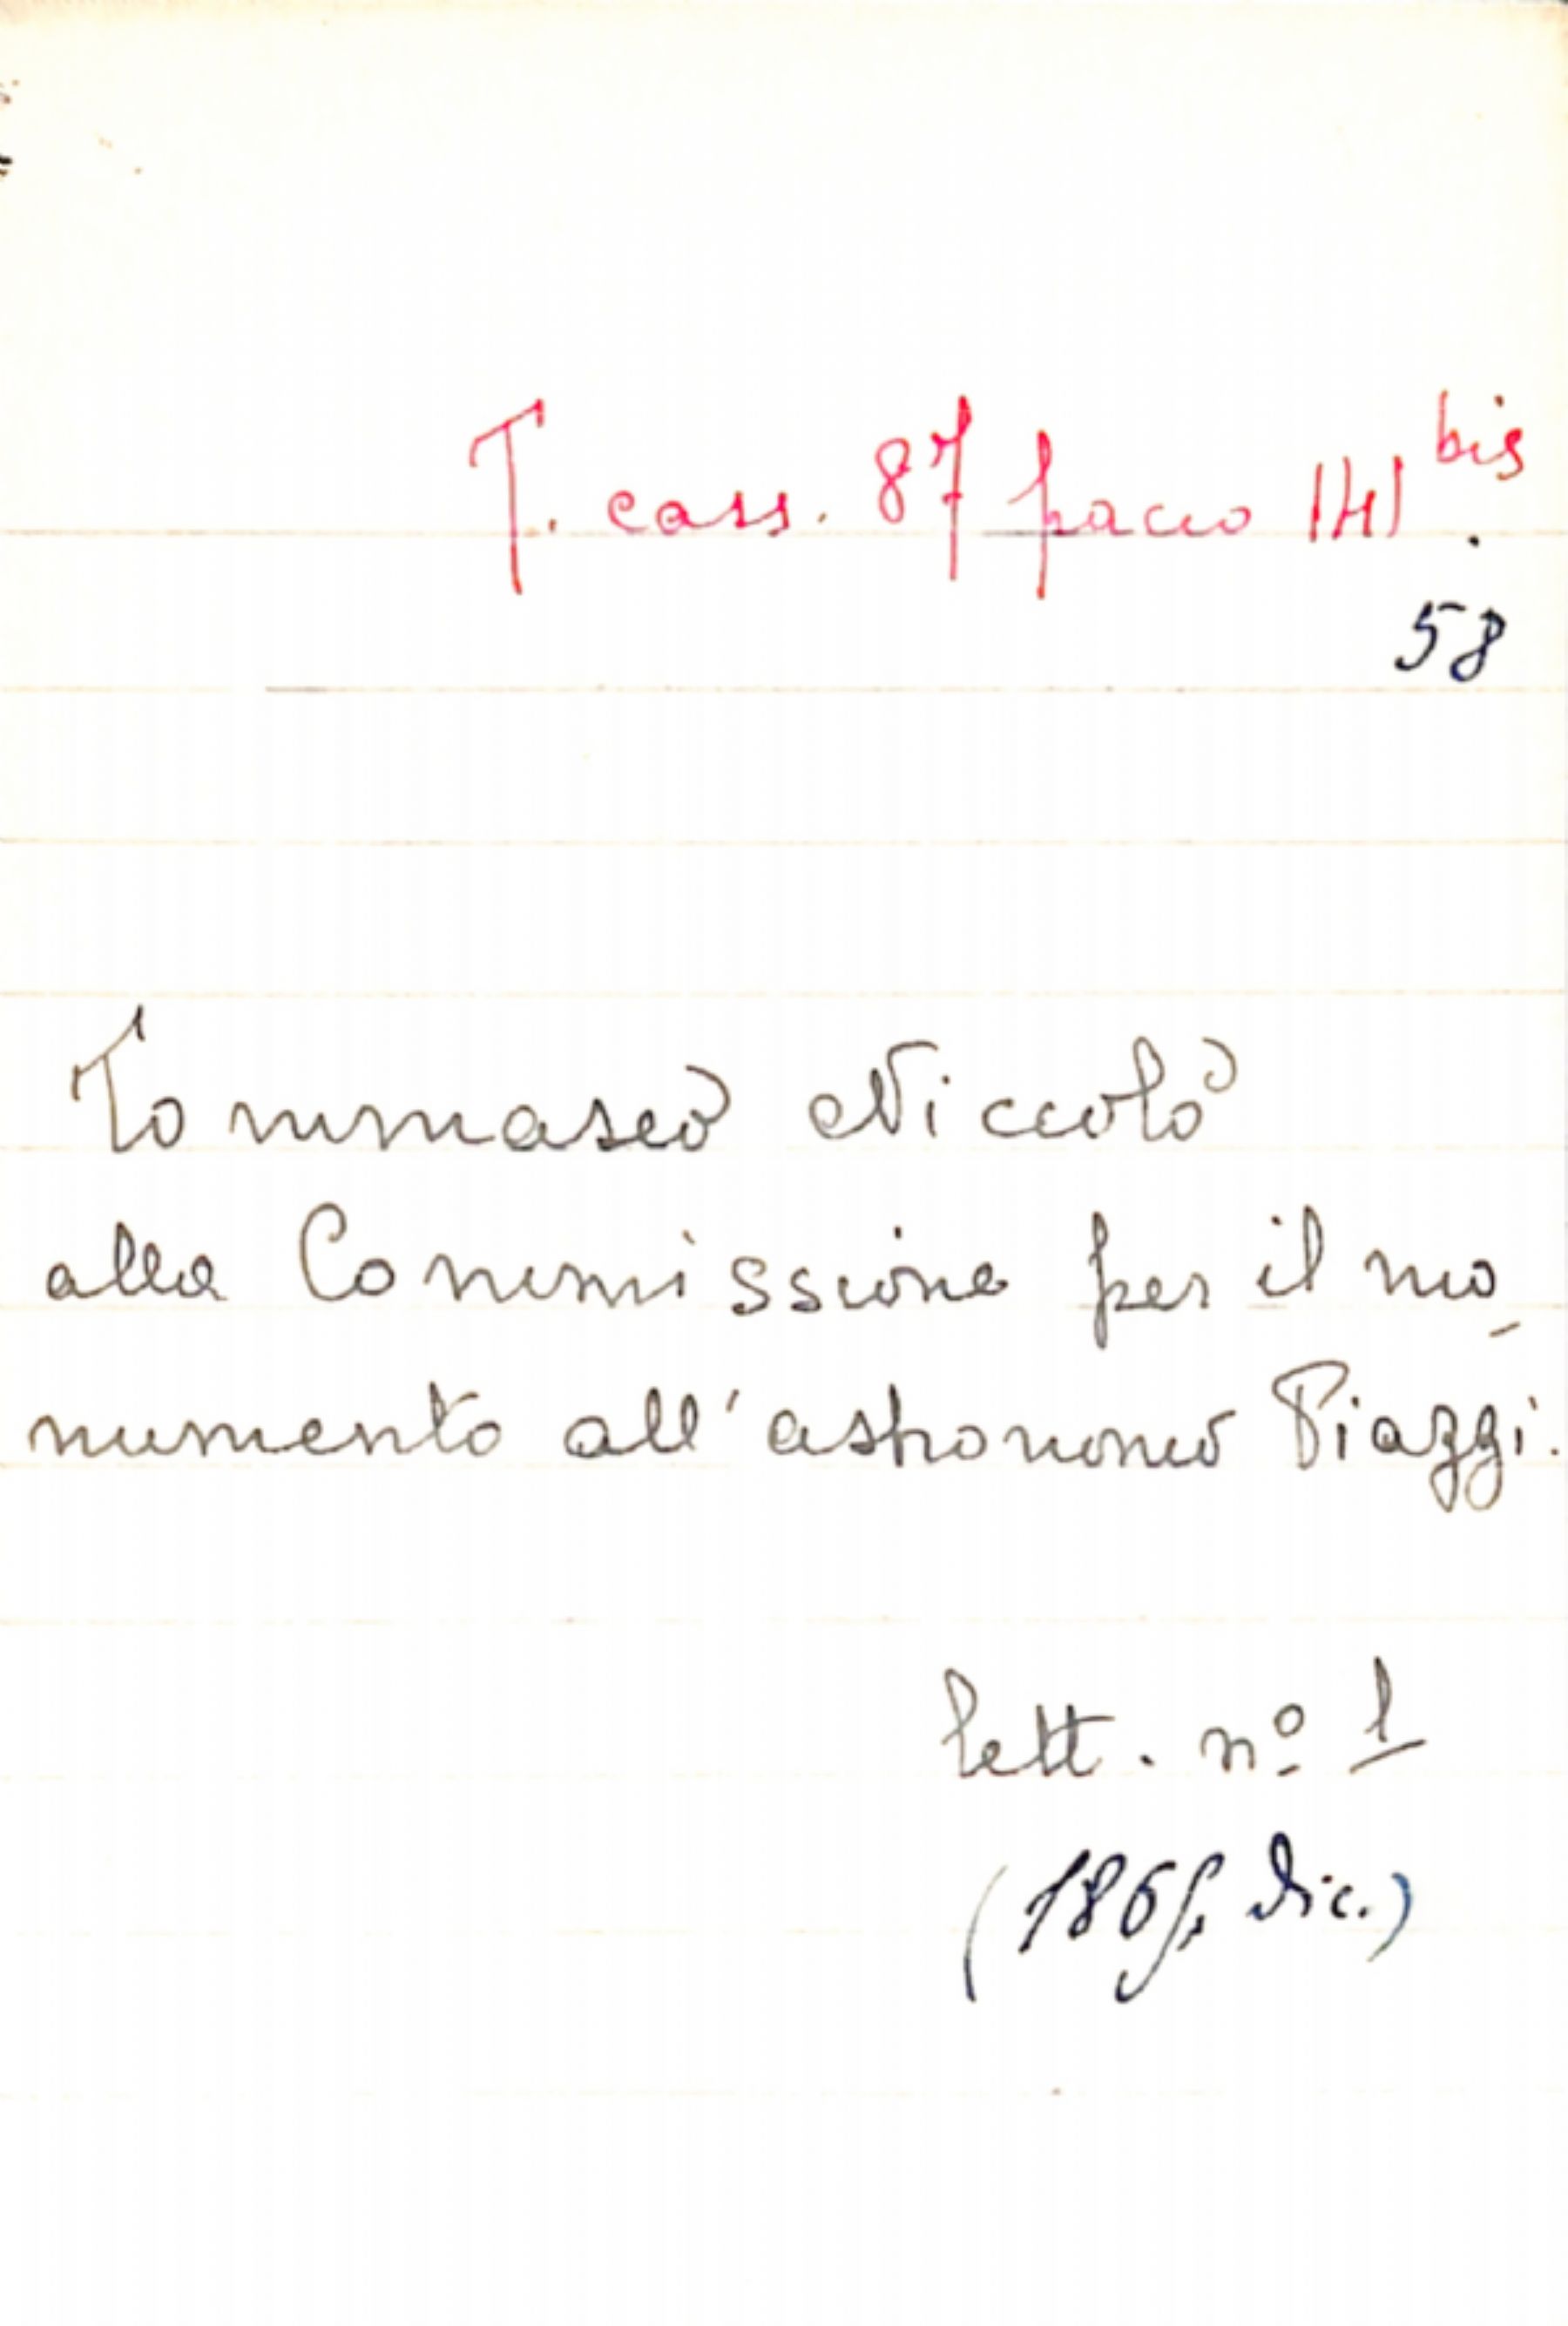 T. cass. 87 pacco 141 bis.
58
Tommaseo Niccolò
alla Commissione per il mo-
numento all'astronomo Piazzi.
lett. nº 1
Dic.)